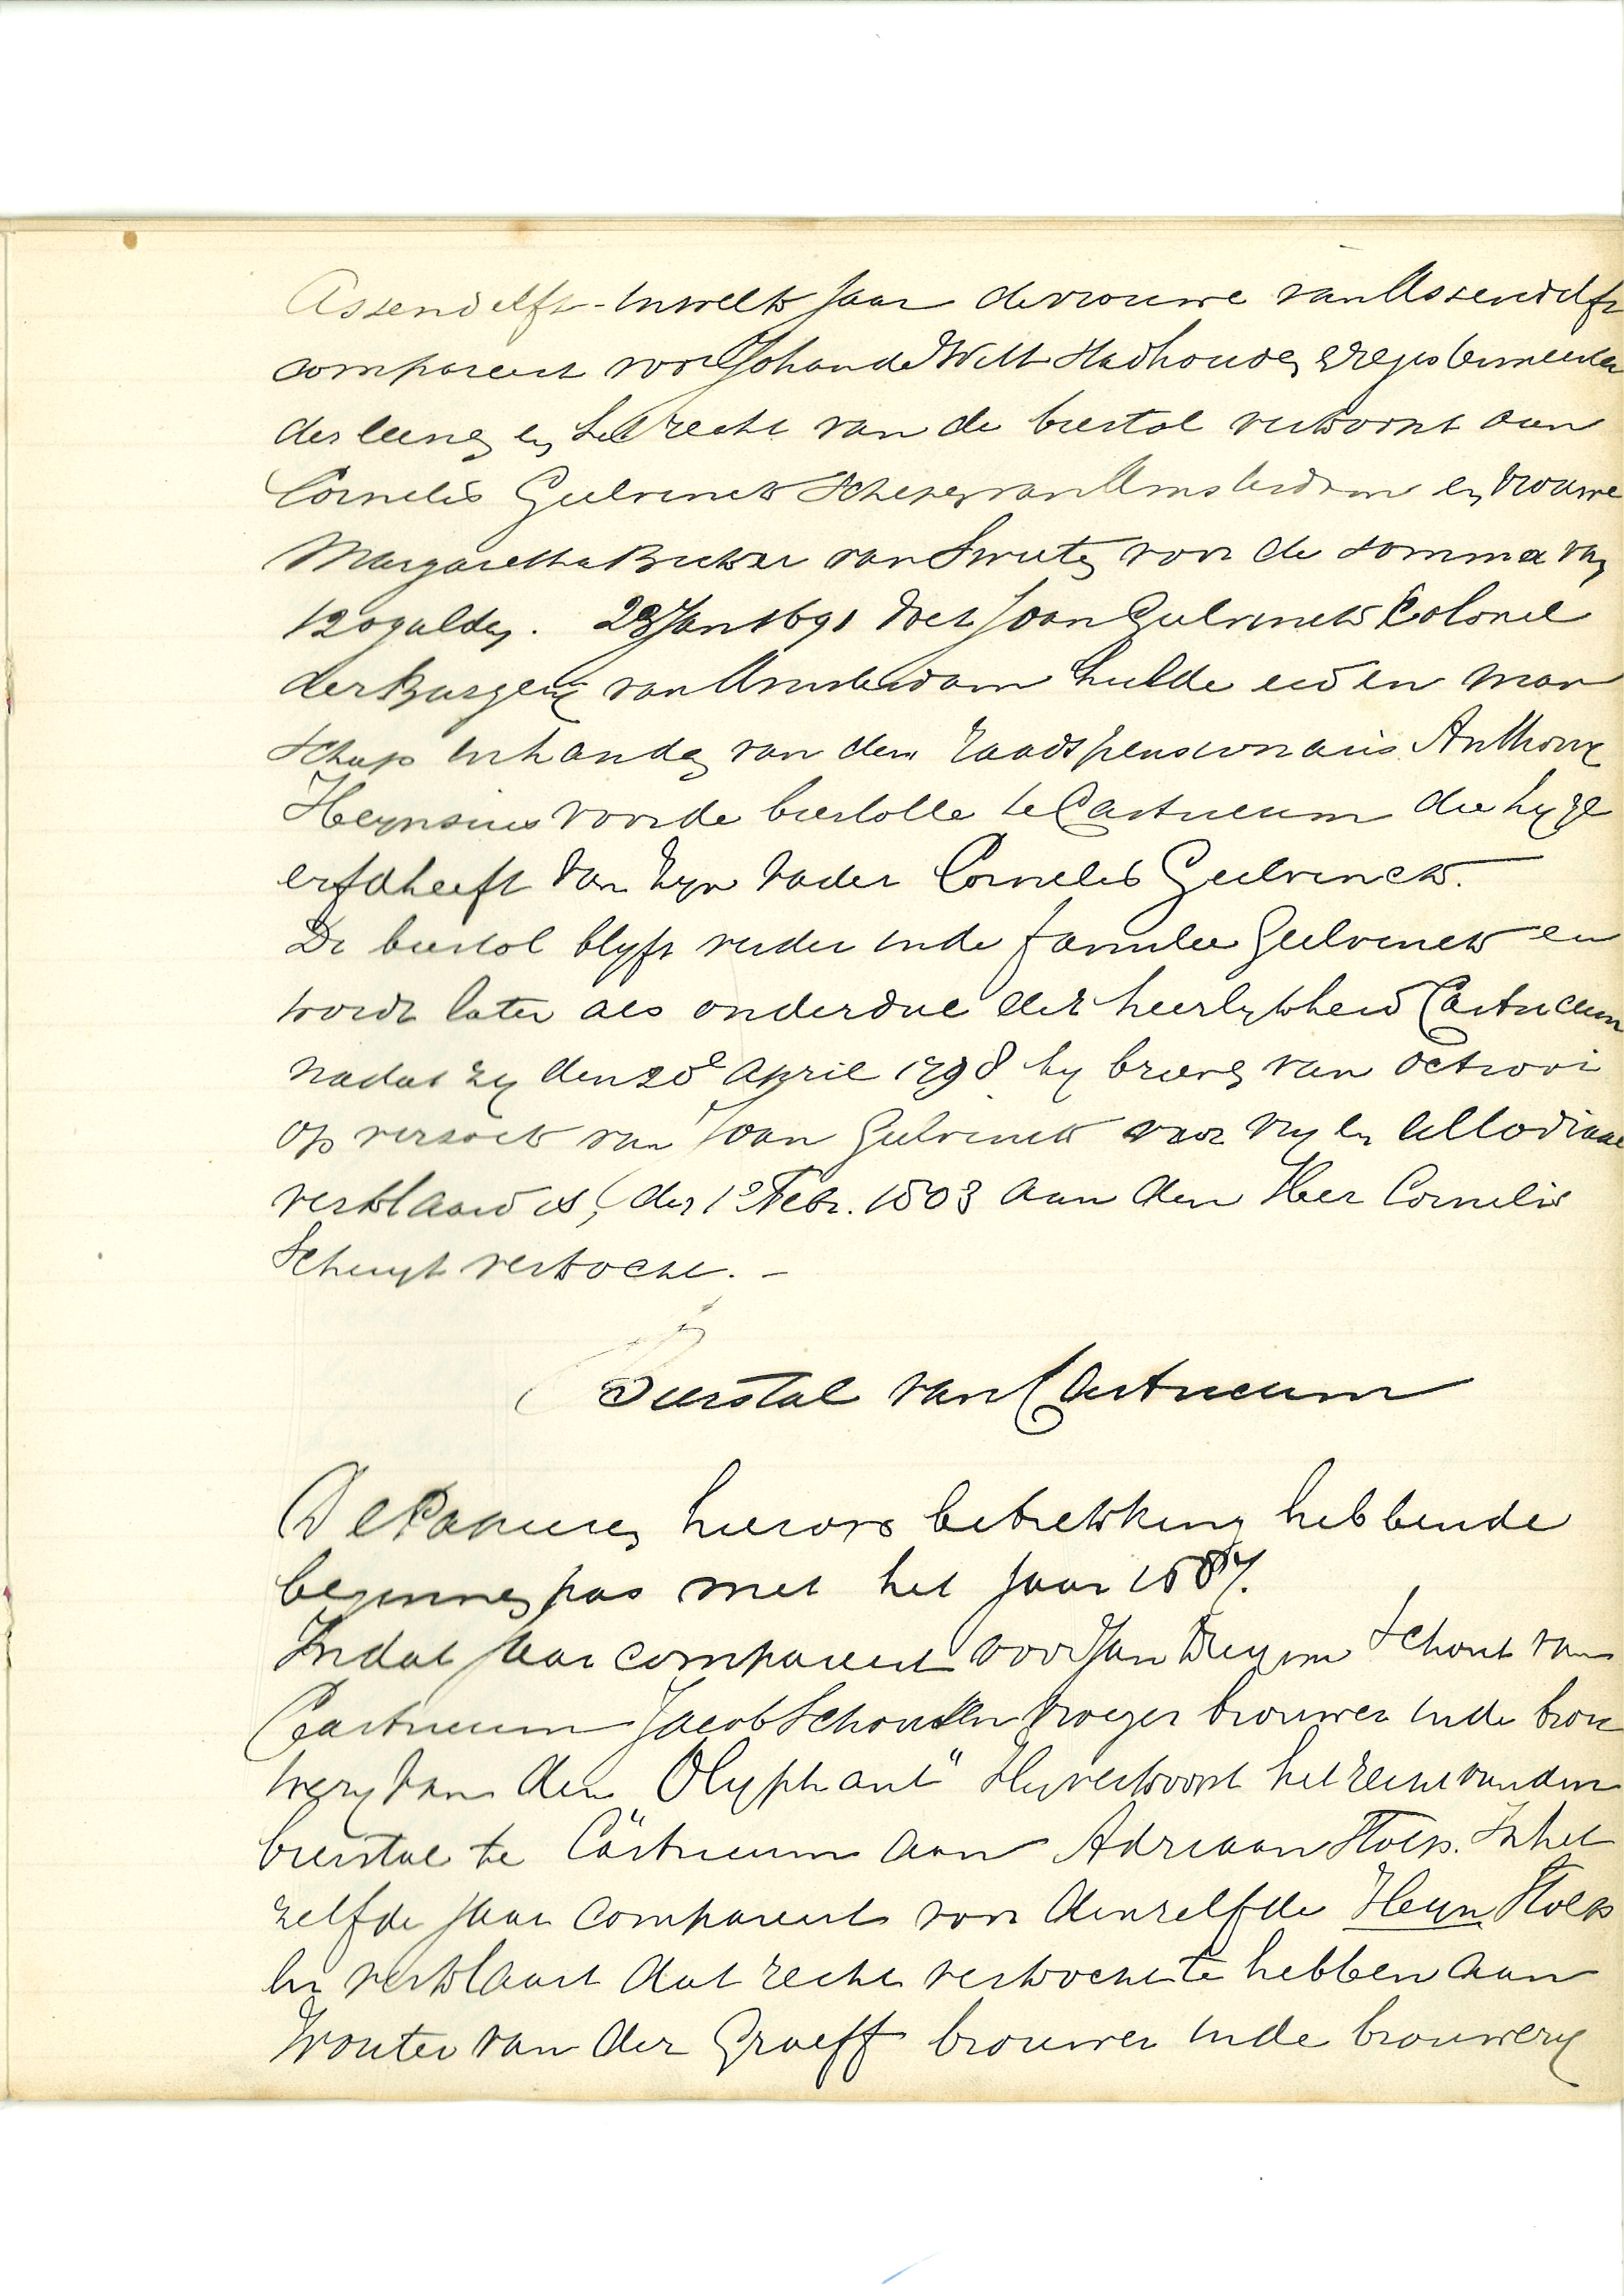 Assendelft - in welk jaar de vrouwe van Assendelft
compareert voor Johan de Witt stadhouder & registermeester
der leenen en het recht van de biertol verkoopt aan
Cornelis Geelvinck Schepen van Amsterdam en vrouwe
Margaretha Bicker van Swieten voor de somma van
120 gulden. 23 Jan 1691 doet Joan Geelvinck Colonel
der Burgery van Amsterdam hulde eed en man
schap in handen van den raadspensionaris Anthony
Heynsius voor de biertolle te Castricum die hy ge
erfd heeft van zyn vader Cornelis Geelvinck.
De biertol blyft verder in de familie Geelvinck en
wordt later als onderdeel der heerlykheid Castricum
nadat zy den 20e April 1798 by brieven van octrooi
op versoek van Joan Geelvinck voor vry en allodiaal
verklaard is, den 1e Febr. 1803 aan den Heer Cornelis
Schuyt verkocht. -
Bierstal van Castricum
De Papieren hierop betrekking hebbende
beginnen pas met het jaar 1687.
In dat jaar compareert voor Jan Schout van
Castricum Jacob Schouten vroeger brouwer in de brou
wery van den Olyphant" Hy verkoopt het recht van den
bierstal te Castricum aan Adriaan Stolp. In het
zelfde jaar compareert voor denzelfde Heyn Stolp
en verklaart dat recht verkocht te hebben aan
Wouter van der Graeff brouwer in de brouwery